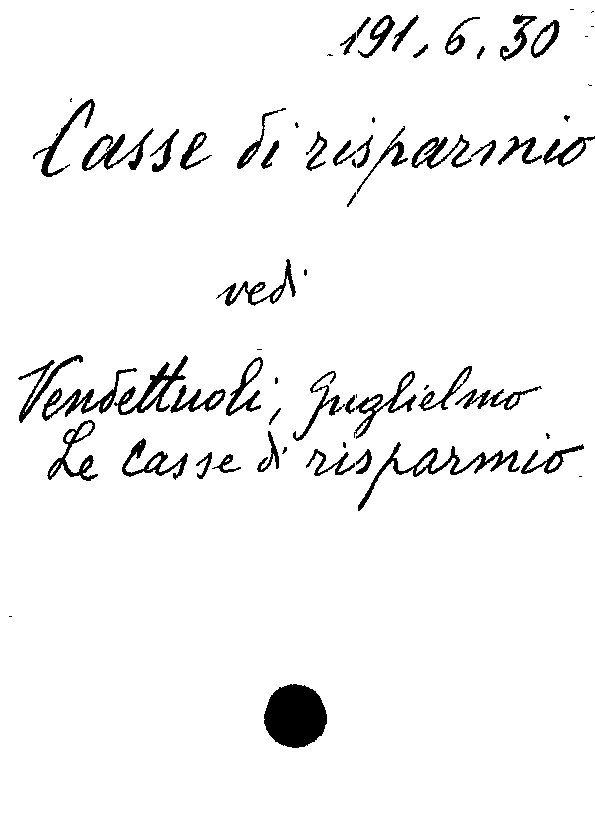 191, 6, 30
Casse di risparmio
vedi
Vendettuoli, Guglielmo
Le casse di risparmio